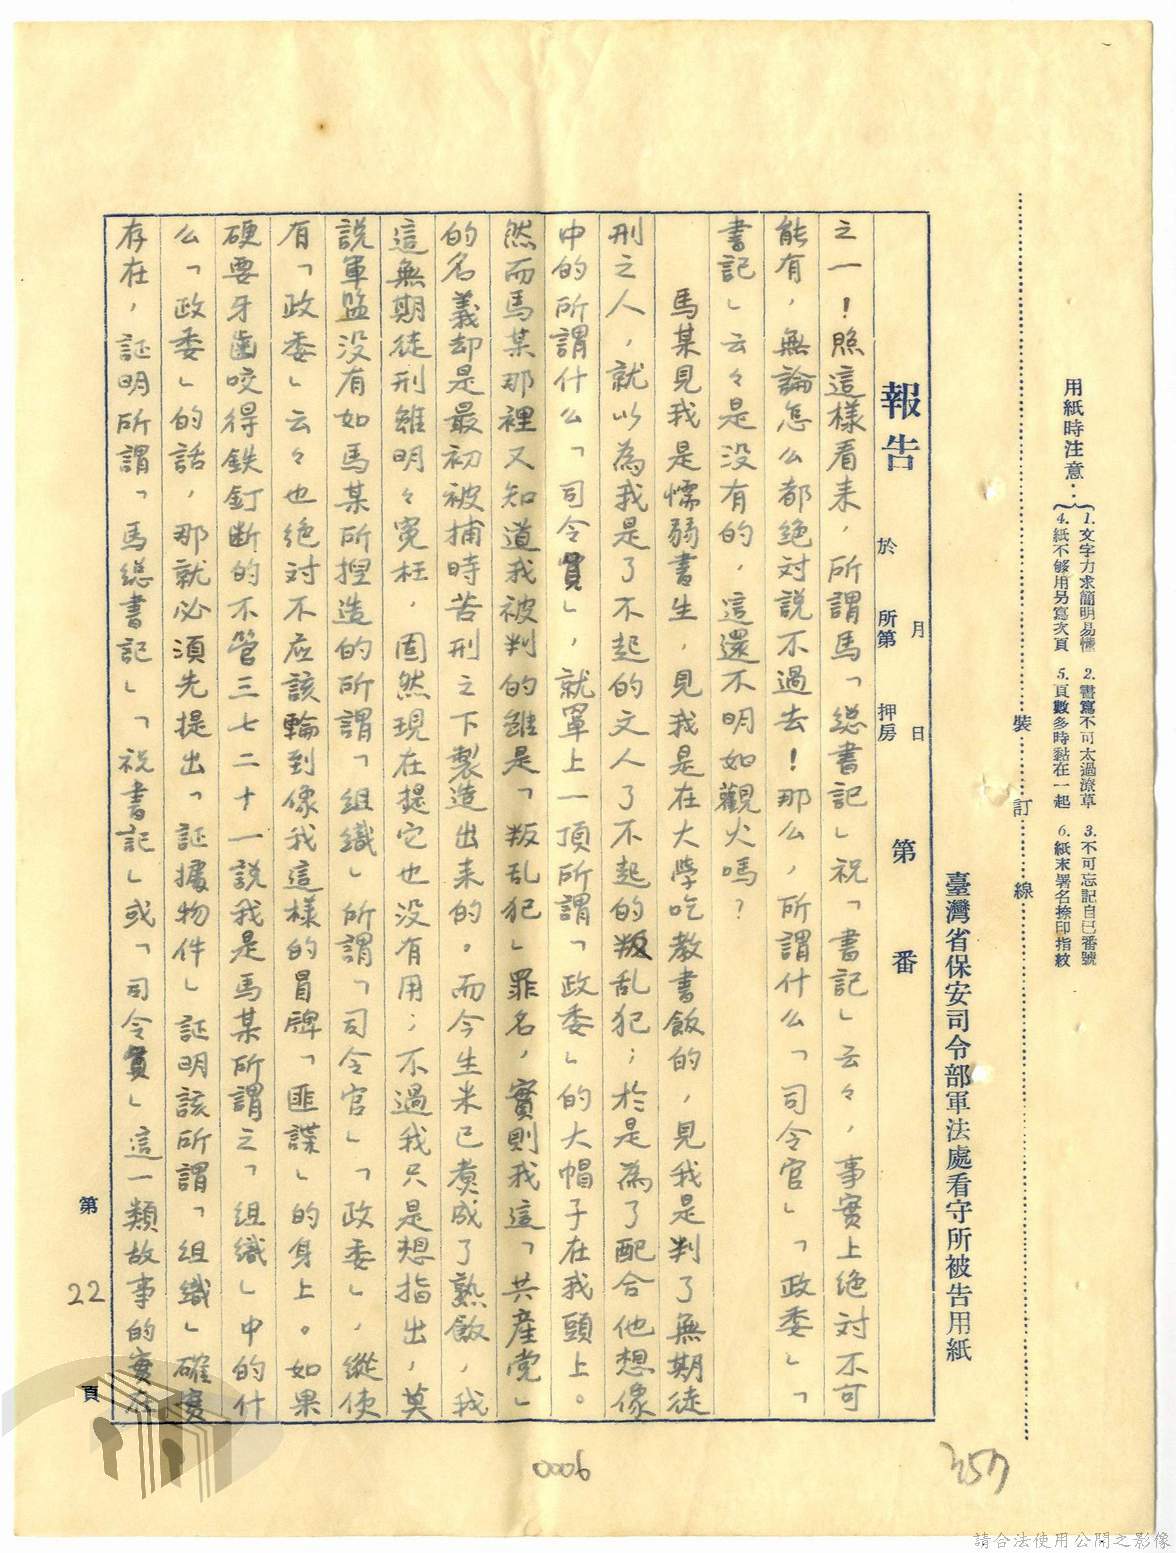 用紙時注意：
1.文字力求簡明易懂 2.書寫不可太過潦草 3.不可忘記自己番號
4.紙不够用另寫次頁 5.頁數多時黏在一起 6.紙末署名捺印指紋
裝 訂 線
臺灣省保安司令部軍法處看守所被告用紙
月 日
報告 於 所第 押房 第 番
之一！照這樣看来，所謂馬「総書記」祝「書記」云々，事實上絶対不可
能有，無論怎么都絶対説不過去！那么，所謂什么「司令官」「政委」「
書記」云々是没有的，這還不明如觀火嗎？
馬某見我是懦弱書生，見我是在大學吃教書飯的，見我是判了無期徒
刑之人，就以為我是了不起的文人了不起的叛乱犯；於是為了配合他想像
中的所謂什么「司令員」，就罩上一頂所謂「政委」的大帽子在我頭上。
然而馬某那裡又知道我被判的雖是「叛乱犯」罪名，實則我這「共産党」
的名義却是最初被捕時苦刑之下製造出来的。而今生米已煮成了熟飯，我
這無期徒刑雖明々冤枉，固然現在提它也没有用；不過我只是想指出，莫
説軍監没有如馬某所捏造的所謂「組織」所謂「司令官」「政委」，縱使
有「政委」云々也绝对不应該輪到像我這樣的冒牌「匪諜」的身上。如果
硬要牙齒咬得鉄釘断的不管三七二十一説我是馬某所謂之「组織」中的什
么「政委」的話，那就必須先提出「証據物件」証明該所謂「组織」確實
存在，証明所謂「馬総書記」「祝書記」或「司令員」這一類故事的實在
第 22 頁
0006
357
請合法使用公開之影像